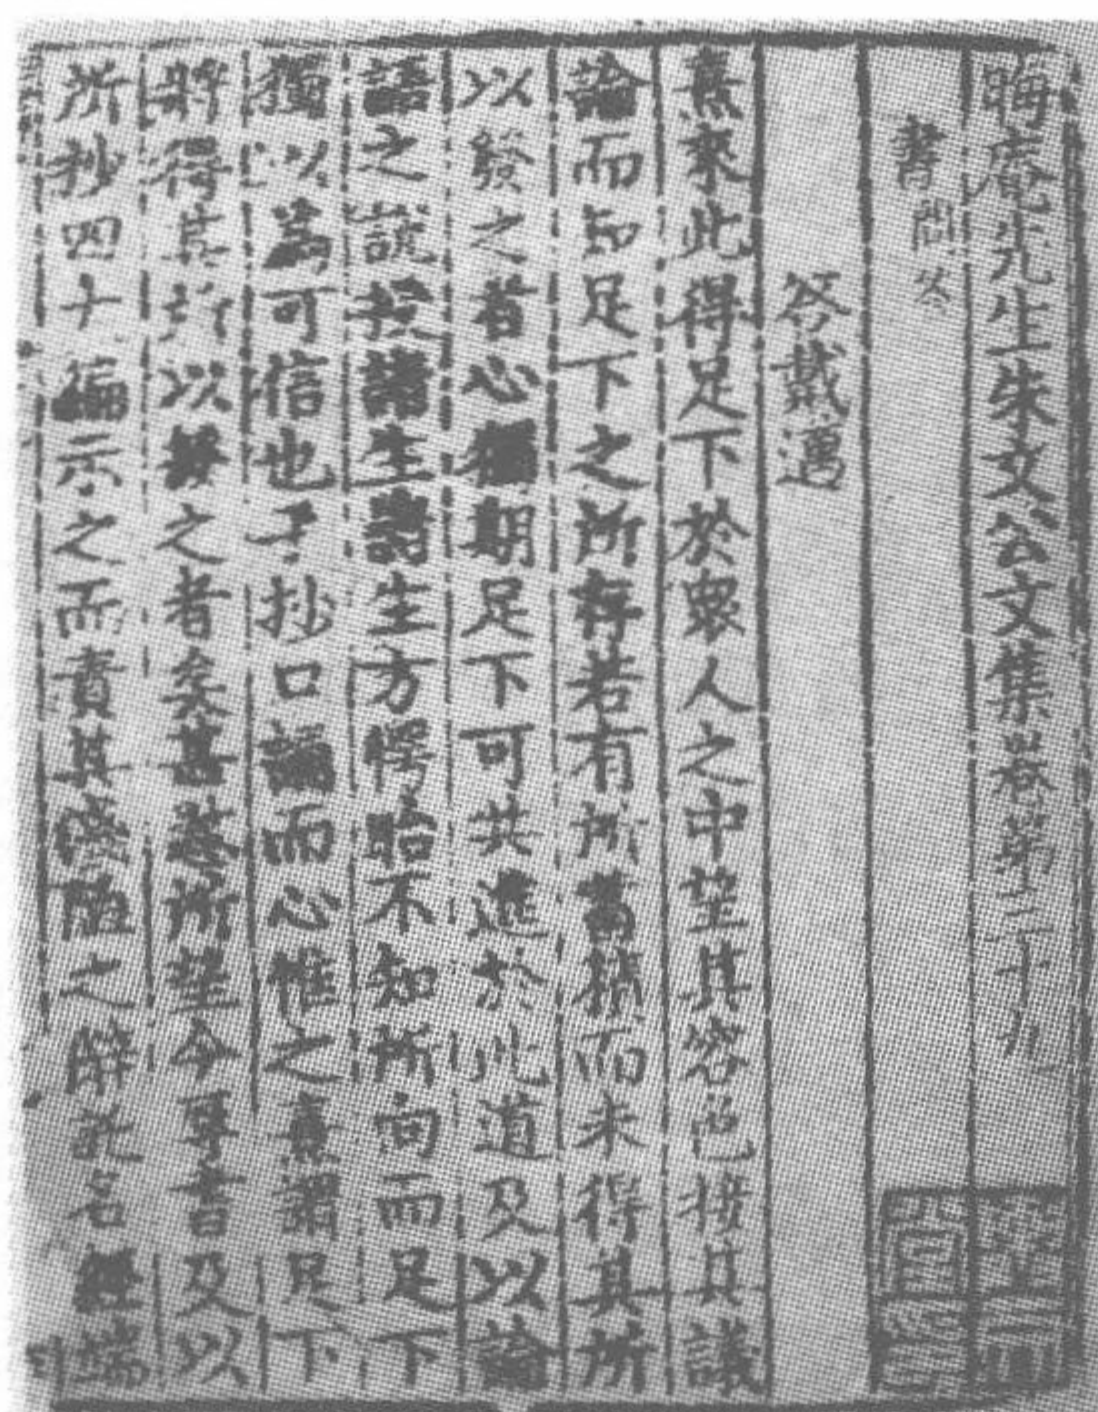 晦庵先生朱文公文集卷第三十九
書問答
答戴邁
熹來此得足下於衆人之中望其容色接其議
論而知足下之所存若有所蓄積而未得其所
以發之者心獨期足下可共進於此道及以論
語之說授諸生諸生方愕眙不知所向而足下
獨以爲可信也手抄口誦而心惟之熹謂足下
將得其所以發之者矣甚慰所望今辱書及以
所抄四十編示之而責其淺陋之辭託名經端